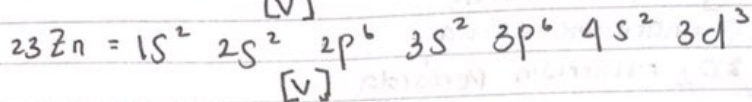 [V]
23Zn = 1S² 2S² 2p⁶ 3S² 3p⁶ 4S² 3d³
[V]